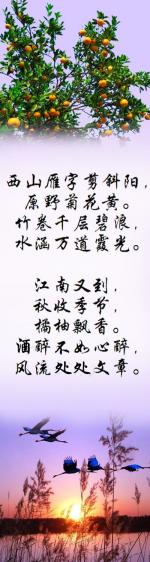 西山雁字剪斜阳，
原野菊花黄。
竹卷千层碧浪，
水涵万道霞光。
江南又到，
秋收季节，
橘柚飘香。
酒醉不如心醉，
风流处处文章。